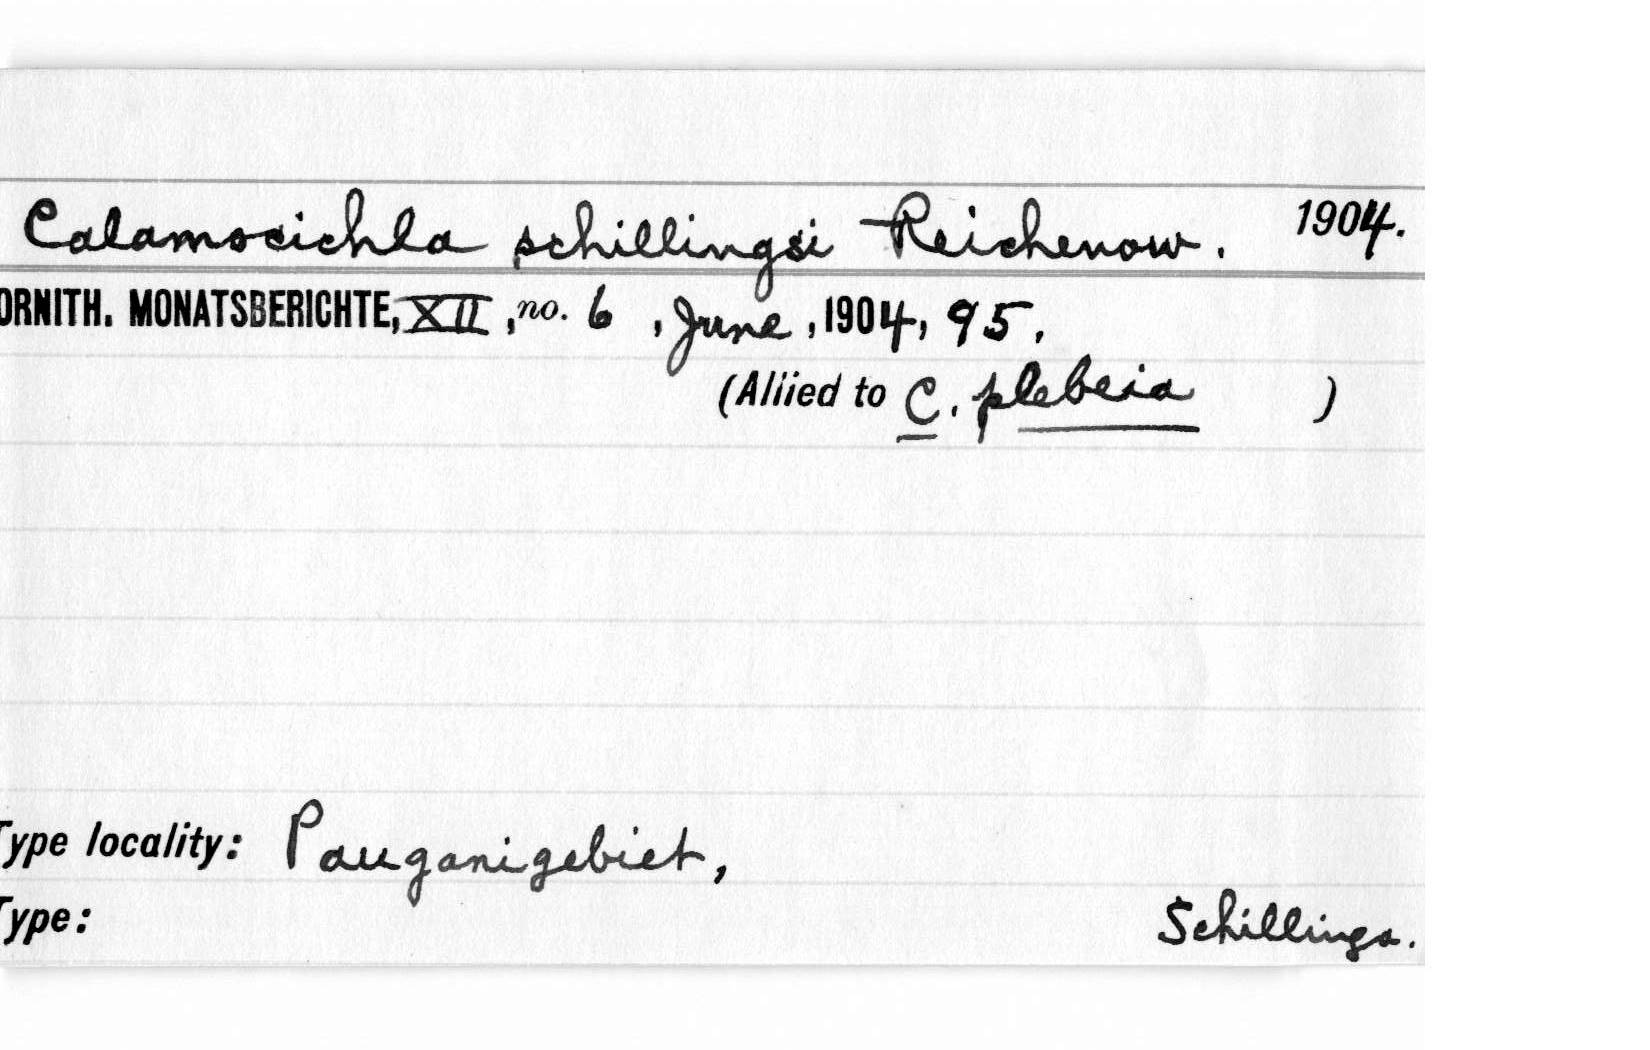 Calamocichla schillingsi Reichenow. 1904.
ORNITH. MONATSBERICHTE, XII, no. 6, June, 1904, 95.
(Allied to C. plebeia )
Type locality: Pauganigebiet,
Type: Schillings.